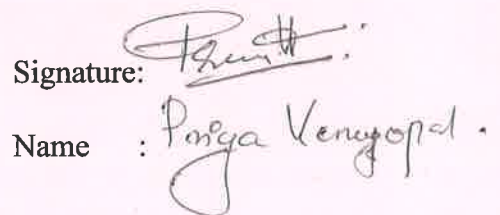 Signature:
Name : Priya Venugopal.